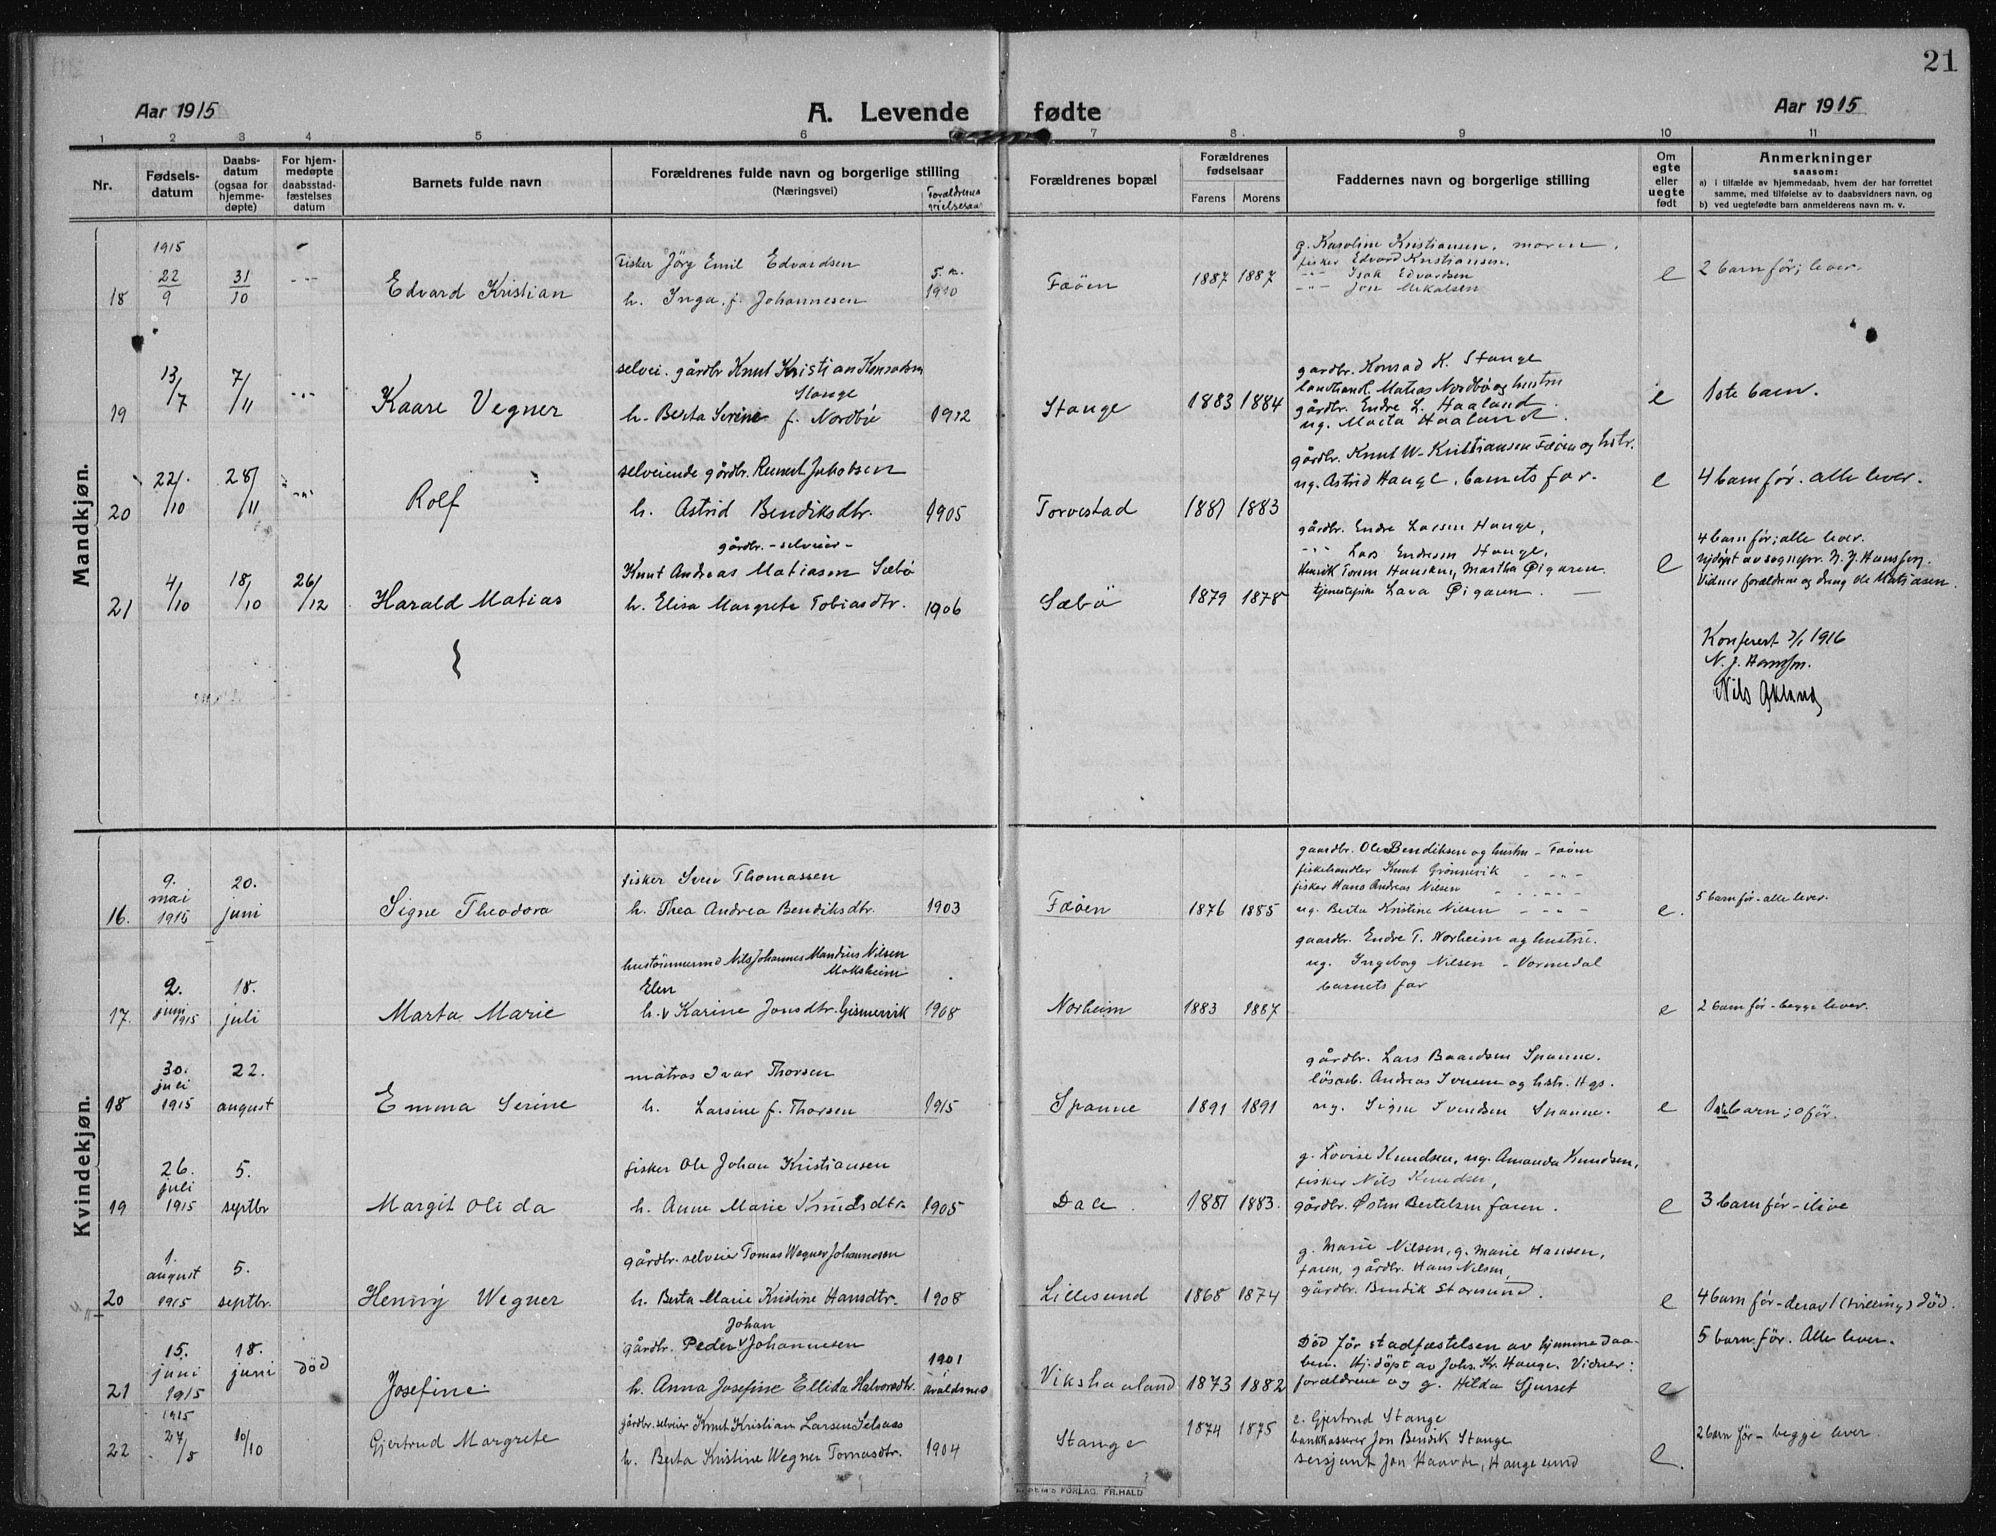 21
Aar 1915
A. Levende fødte
Aar 1915
1 2 3 4 5 6 7 8 9 10 11
Nr.
Fødsels-
datum
Daabs-
datum
(ogsaa for
hjemme-
døpte)
For hjem-
medøpte
daabsstad-
fæstelses
datum
Barnets fulde navn
Forældrenes fulde navn og borgerlige stilling
(Næringsvei)
Forældrenes
vielsesaar
Forældrenes bopæl
Forældrenes
fødselsaar
Farens Morens
Faddernes navn og borgerlige stilling
Om
egte
eller
uegte
født
Anmerkninger
saasom:
a) i tilfælde av hjemmedaab, hvem der har forrettet
samme, med tilføielse av to daabsvidners navn, og
b) ved uegtefødte barn anmelderens navn m. v.
Mandkjøn.
18
1915
22/9
31/10
Edvard Kristian
Fisker Jörg Emil Edvardsen
h. Inga f. Johannesen
1910
Fæöen
1887 1887
g. Karoline Kristiansen, moren,
fisker Edvard Kristiansen,
-"- Isak Edvardsen
-"- Jon Mikalsen
e
2 barn før; lever.
19
13/7
7/11
Kaare Vegner
selvei. gårdbr Knut Kristian Konradsen
Stange
h. Berta Serine f. Nordbö
1912
Stange
1883 1884
gårdbr. Konrad K. Stange
landhandl. Matias Nordbø og hustru
gårdbr. Endre L. Haaland.
ug. Marta Haaland.
e
1ste barn.
20
22/10
28/11
Rolf
selveiende gårdbr. Reinert Jakobsen
h. Astrid Bendiksdtr.
1905
Torvestad
1881 1883
gårdbr. Knut W. Kristiansen Fæöen og hstr.
ug. Astrid Hauge, barnets far.
e
4 barn før. alle lever.
21
4/10
18/10
26/12
Harald Matias
gårdbr. -selveier-
Knut Andreas Matiasen Sæbö
h. Elisa Margrete Tobiasdtr.
1906
Sæbö
1879 1878
gårdbr. Endre Larsen Hauge,
-"- Lars Endresen Hauge,
Henrik Torsen Hansken, Martha Øigaren.
tjenestepike Lava Øigaren.
e
4 barn før; alle lever.
Hjdöpt av sognepr. N. J. Hansson.
Vidner forældrene og
Konferert 3/1 1916
N. J. Hansson.
Nils
Kvindekjøn.
16.
9.
mai
1915
20.
juni
Signe Theodora
fisker Sven Thomassen
h. Thea Andrea Bendiksdtr.
1903
Fæöen
1876 1885
gaardbr. Ole Bendiksen og hustru - Fæöen
fiskehandler Knut Grönnevik - " - " -
fisker Hans Andreas Nilsen - " - " -
ug. Berta Kristine Nilsen - " - " -
e.
5 barn før - alle lever.
17.
2.
juni
1915
18.
juli
Marta Marie
hustömmermd Nils Johannes Mandius Nilsen
Moksheim
Elen
h. v Karine Jonsdtr. Gismervik
1908
Norheim
1883 1887
gaardbr. Endre T. Norheim og hustru.
ug. Ingeborg Nilsen - Vormedal
barnets far
e
2 barn før - begge lever.
18
30.
juli
1915
22.
august
Emma Serine
matros Ivar Thorsen
h. Larsine f. Thorsen
1915
Spanne
1891 1891
gårdbr. Lars Baardsen Spanne.
løsarb. Andreas Ivensen og hstr. Hgs.
ug. Signe Svendsen Spanne.
e
1ste barn; o før.
19
26.
juli
1915
5.
septbr
Margit Olida
fisker Ole Johan Kristiansen
h. Anne Marie Knudsdtr
1905
Dale
1881 1883.
g. Lovise Knudsen, ug. Amanda Knudsen,
fisker Nils Knudsen,
gårdbr. Østen Bertelsen faren.
e
3 barn før - ilive
20
1.
august
1915
5.
septbr.
Henny Wegner
gårdbr. selveier Tomas Wegner Johannesen
h. Berta Marie Kristine Hansdtr.
1908
Lillesund
1865 1874
g. Marie Nilsen, g. Marie Hansen,
faren, gårdbr. Hans Nilsen,
gårdbr. Bendik Storesund.
e
4 barn før - derav 1 (tvilling) død.
21
15.
juni
1915
18.
juni
død
Josefine
Johan
gårdbr. Peder v Johannesen
h. Anna Josefine Ellida Halvorsdtr.
1901
Avaldsnes
Vikshaaland
1873 1882
Död før stadfæstelsen av hjemmedaa-
ben. Hj.döpt av Johs. Kr. Hauge. Vidner:
forældrene og g. Hilda Sjurset
e
5 barn før. Alle lever.
22
1915
27/8
10/10
Gjertrud Margrete
gårdbr. selveier Knut Kristian Larsen Selsaas
h. Berta Kristine Wegner Tomasdtr.
1904
Stange
1874 1875
e. Gjertrud Stange
bankkasserer Jon Bendik Stange
sersjant Jon Haavde, Haugesund
e.
2 barn før - begge lever.
FORLAG. FR. HALD